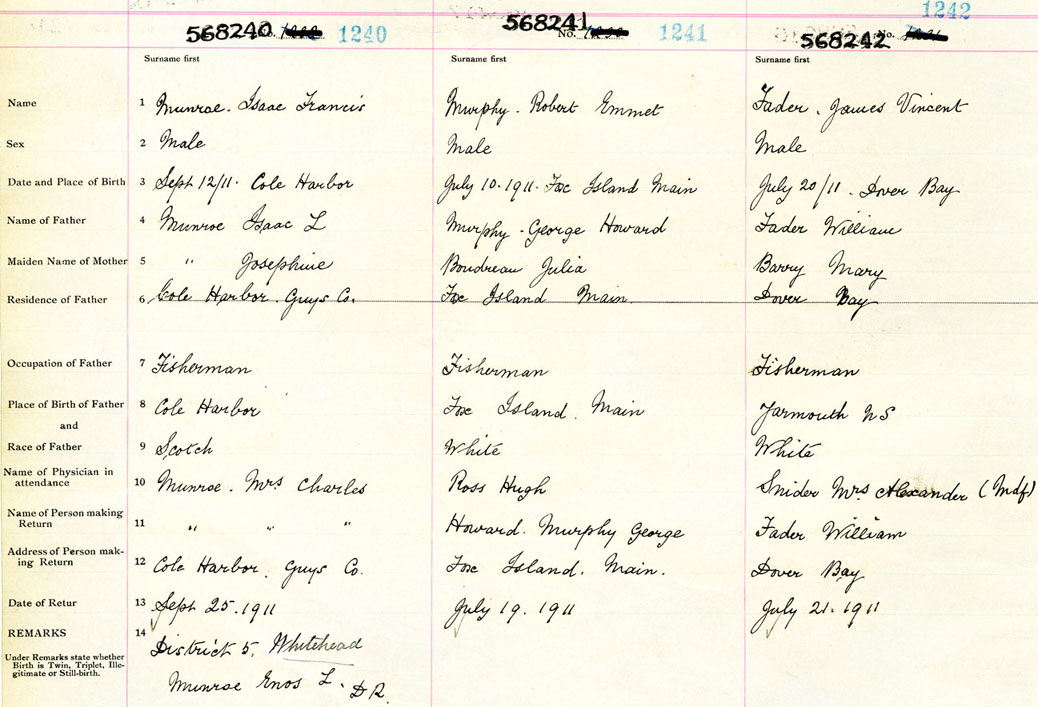 1242
568240 No. 1240
568241 No. 1241
568242 No.
Surname first Surname first Surname first
Name 1 Munroe. Isaac Francis Murphy. Robert Emmet Fader. James Vincent
Sex 2 Male Male Male
Date and Place of Birth 3 Sept 12/11. Cole Harbor July 10. 1911. Fox Island Main July 20/11. Dover Bay
Name of Father 4 Munroe Isaac L Murphy. George Howard Fader William
Maiden Name of Mother 5 " Josephine Boudreau Julia Barry Mary
Residence of Father 6 Cole Harbor. Guys Co. Fox Island Main. Dover Bay
Occupation of Father 7 Fisherman Fisherman Fisherman
Place of Birth of Father 8 Cole Harbor Fox Island. Main Yarmouth NS
and
Race of Father 9 Scotch White White
Name of Physician in
attendance 10 Munroe. Mrs Charles Ross Hugh Snider Mrs Alexander (Mdf)
Name of Person making
Return 11 " " " Howard. Murphy George Fader William
Address of Person mak-
ing Return 12 Cole Harbor. Guys Co. Fox Island. Main. Dover Bay
Date of Retur 13 Sept 25. 1911 July 19. 1911 July 21. 1911
REMARKS 14 District 5. Whitehead
Under Remarks state whether
Birth is Twin, Triplet, Ille-
gitimate or Still-birth.
Munroe Enos L. DR.